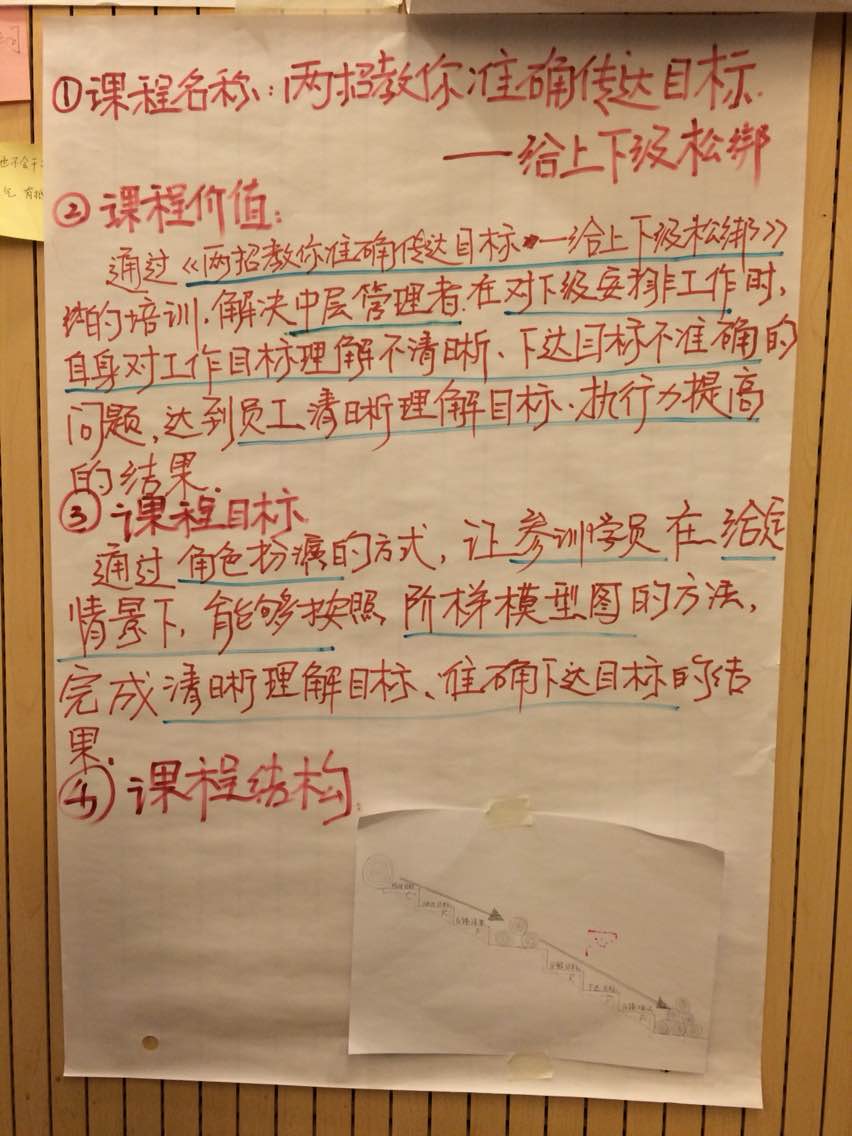 ①课程名称:两招教你准确传达目标
——给上下级松绑
②课程价值:
通过《两招教你准确传达目标——给上下级松绑》
的培训,解决中层管理者在对下级安排工作时,
自身对工作目标理解不清晰、下达目标不准确的
问题,达到员工清晰理解目标、执行力提高
的结果.
③课程目标
通过角色扮演的方式,让参训学员在给定
情景下,能够按照阶梯模型图的方法,
完成清晰理解目标、准确下达目标的结
果.
④课程结构